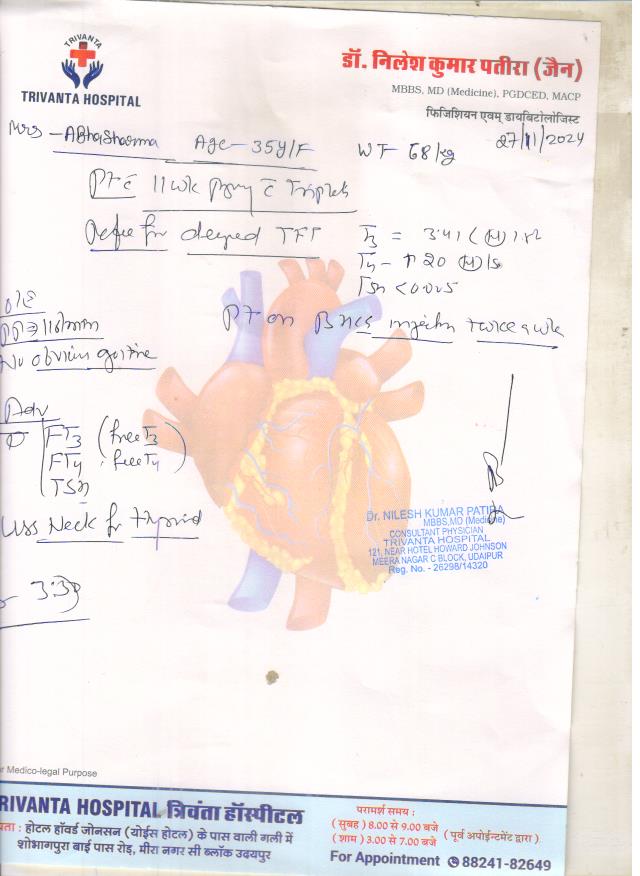 TRIVANTA
TRIVANTA HOSPITAL
डॉ. निलेश कुमार पतीरा (जैन)
MBBS, MD (Medicine), PGDCED, MACP
फिजिशियन एवम् डायबिटोलोजिस्ट
27/11/2024
Mrs - Abha Sharma Age - 35Y/F WT 68/kg
11wk c Triplets
for TFT T3 = 3.41 (H)
T4 - ↑ 20 (H)
TSH <0.005
O/E
No obvious goitre
PT on injectn twice a wk
Adv
FT3 (free T3
FT4 free T4)
TSH
USS Neck for thyroid
3:30
Dr. NILESH KUMAR PATIRA
MBBS,MD (Medicine)
CONSULTANT PHYSICIAN
TRIVANTA HOSPITAL
121, NEAR HOTEL HOWARD JOHNSON
MEERA NAGAR C BLOCK, UDAIPUR
Reg. No. - 26298/14320
r Medico-legal Purpose
RIVANTA HOSPITAL त्रिवंता हॉस्पीटल
पता : होटल हॉवर्ड जोनसन (योईस होटल) के पास वाली गली में
शोभागपुरा बाई पास रोड़, मीरा नगर सी ब्लॉक उदयपुर
परामर्श समय :
( सुबह ) 8.00 से 9.00 बजे
( शाम ) 3.00 से 7.00 बजे
( पूर्व अपोईन्टमेंट द्वारा )
For Appointment 88241-82649